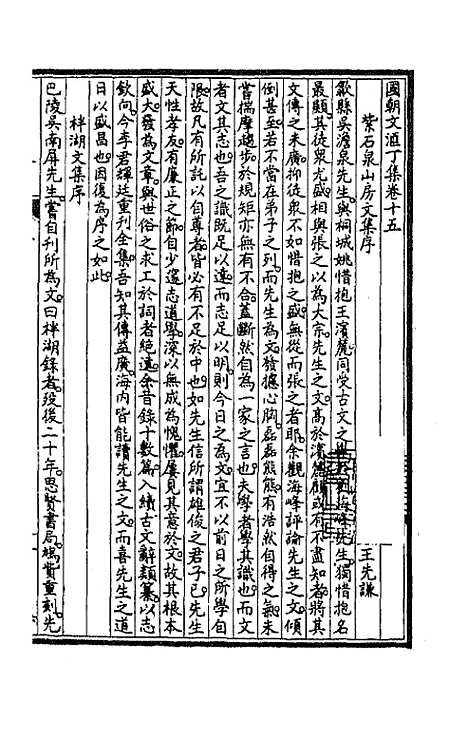 國朝文匯丁集卷十五
紫石泉山房文集序 王先謙
歙縣吳澹泉先生與桐城姚惜抱王濱麓同受古文之學於劉海峰先生獨惜抱名
最顯其徒衆尤盛相與張之以為大宗先生之文高於濱麓顧或有不盡知者將其
文傳之未廣抑徒衆不如惜抱之盛無從而張之者耶余觀海峰評論先生之文傾
倒甚至若不當在弟子之列而先生為文發攄心胸磊磊熊熊有浩然自得之氣未
嘗揣摩趨步於規矩亦無有不合蓋斷然自為一家之言也夫學者學其識也而文
者文其志也吾之識既足以達而志足以明則今日之為文宜不以前日之所學自
限故凡有所託以自尊者皆必有不足於中也如先生信所謂雄俊之君子已先生
天性孝友有廉正之節自少邃志道學深以無成為愧懼屢見其意於文故其根本
盛大發為文章與世俗之求工於詞者絕遠余昔錄十數篇入續古文辭類纂以志
欽向今李君輝廷重刊全集吾知其傳益廣海内皆能讀先生之文而喜先生之道
日以盛昌也因復為序之如此
柈湖文集序
巴陵吳南屏先生嘗自刊所為文曰柈湖錄者歿後二十年思賢書局竭貲重刻先